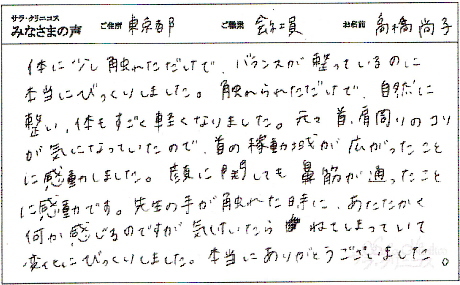 サラ・クリニコス
みなさまの声 ご住所 東京都 ご職業 会社員 お名前 高橋尚子
体に少し触れただけで、バランスが整っているのに
本当にびっくりしました。触れられただけで、自然に
整い、体もすごく軽くなりました。元々首、肩周りのコリ
が気になっていたので、首の稼動域が広がったこと
に感動しました。顔に関しても鼻筋が通ったこと
に感動です。先生の手が触れた時に、あたたかく
何か感じるのですが気付いたらねてしまっていて
変化にびっくりしました。本当にありがとうございました。